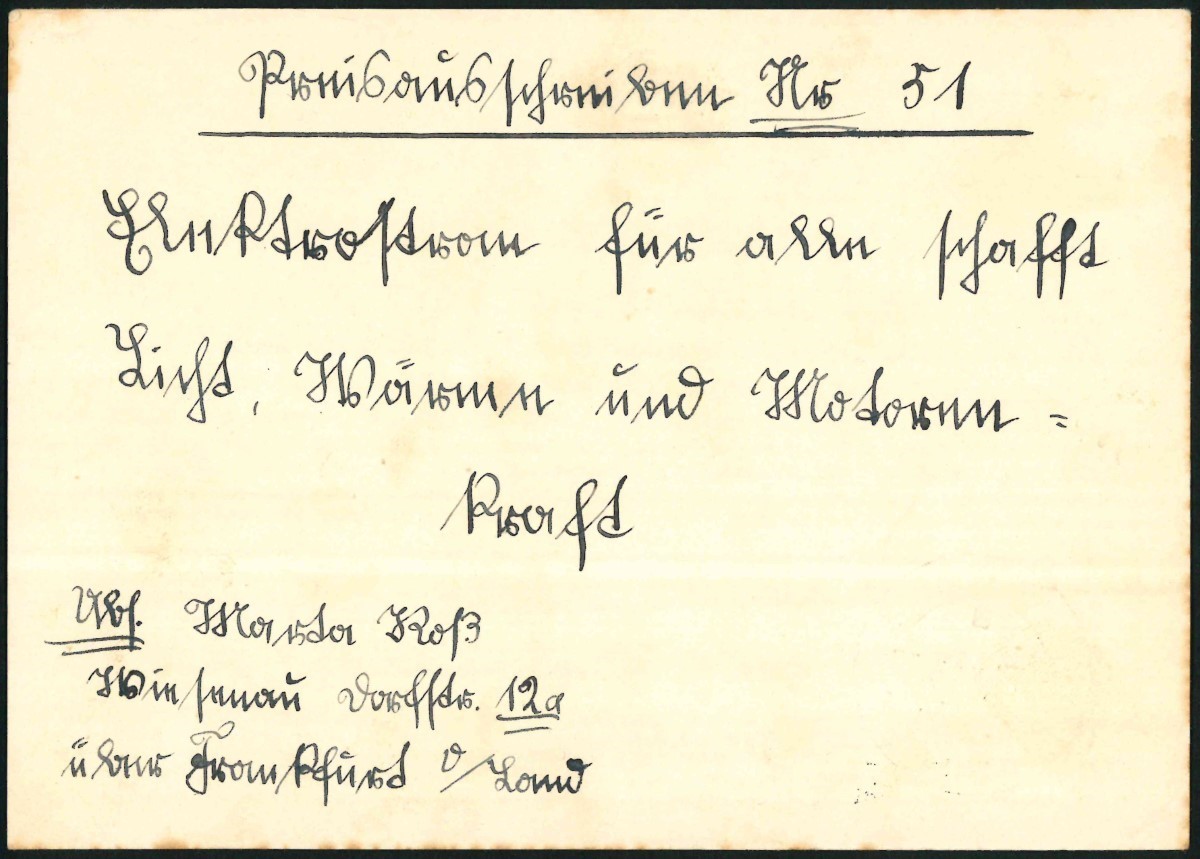 Preisausschreiben Nr 51
Elektrostrom für alle schafft
Licht, Wärme und Motoren =
kraft
Abs. Marta Roß
Wiesenau Dorfstr. 12a
über Frankfurt O/Land